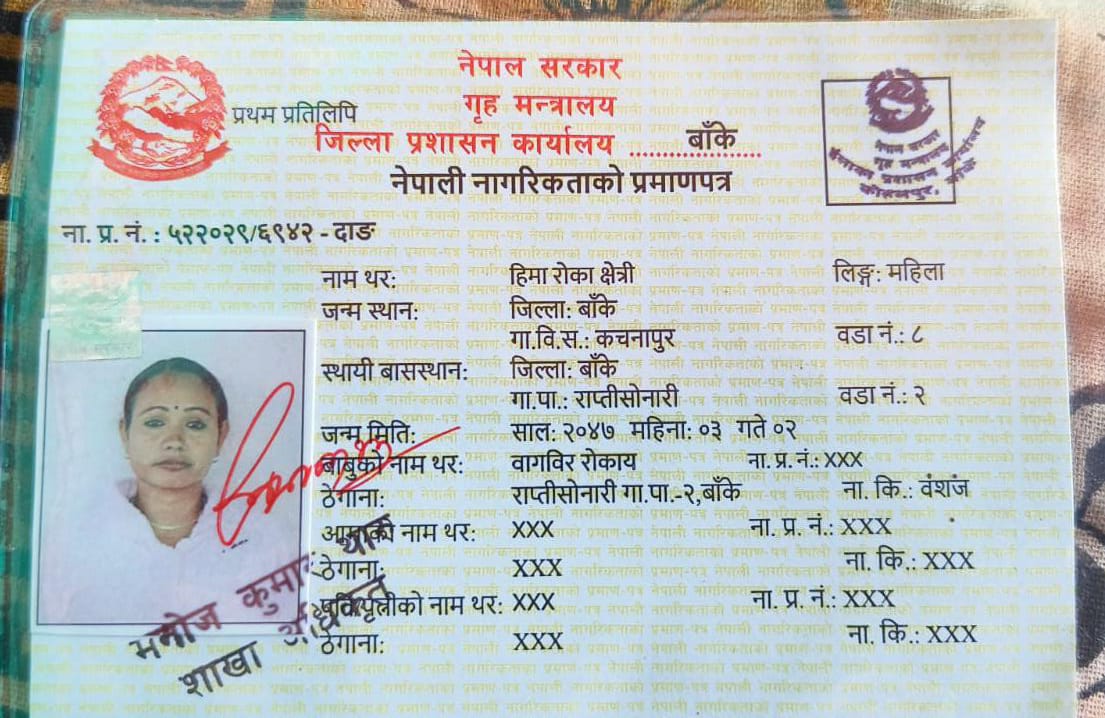 नेपाल सरकार
गृह मन्त्रालय
प्रथम प्रतिलिपि
जिल्ला प्रशासन कार्यालय ............ बाँके
नेपाली नागरिकताको प्रमाणपत्र
नेपाल सरकार
गृह मन्त्रालय
प्रशासन कार्यालय
कोहलपुर, बाँके
ना. प्र. नं. : ५२२०२९/६९४२ - दाङ
नाम थर: हिमा रोका क्षेत्री लिङ्ग: महिला
जन्म स्थान: जिल्ला: बाँके
गा.वि.सं.: कचनापुर वडा नं.: ८
स्थायी बासस्थान: जिल्ला: बाँके
गा.पा.: राप्तीसोनारी वडा नं.: २
जन्म मिति: साल: २०४७ महिना: ०३ गते ०२
बाबुको नाम थर: वागविर रोकाय ना. प्र. नं.: XXX
ठेगाना: राप्तीसोनारी गा.पा.-२,बाँके ना. कि.: वंशज
आमाको नाम थर: XXX ना. प्र. नं.: XXX
ठेगाना: XXX ना. कि.: XXX
पति/पत्नीको नाम थर: XXX ना. प्र. नं.: XXX
ठेगाना: XXX ना. कि.: XXX
मनोज कुमार
शाखा अधिकृत